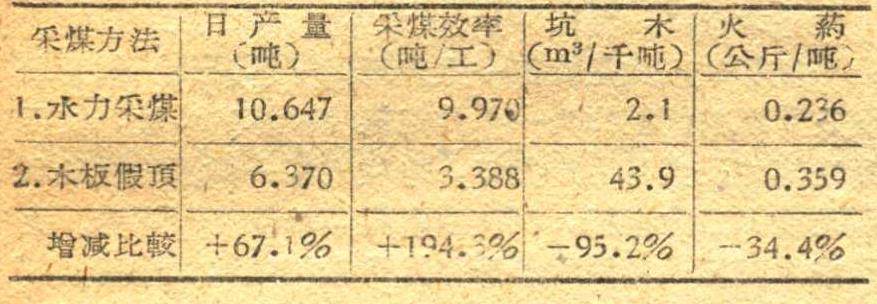 采煤方法 日产量(吨) 采煤效率(吨/工) 坑木(m³/千吨) 火葯(公斤/吨)
1.水力采煤 10.647 9.970 2.1 0.236
2.木板假頂 6.370 3.388 43.9 0.359
增减比較 +67.1% +194.3% -95.2% -34.4%